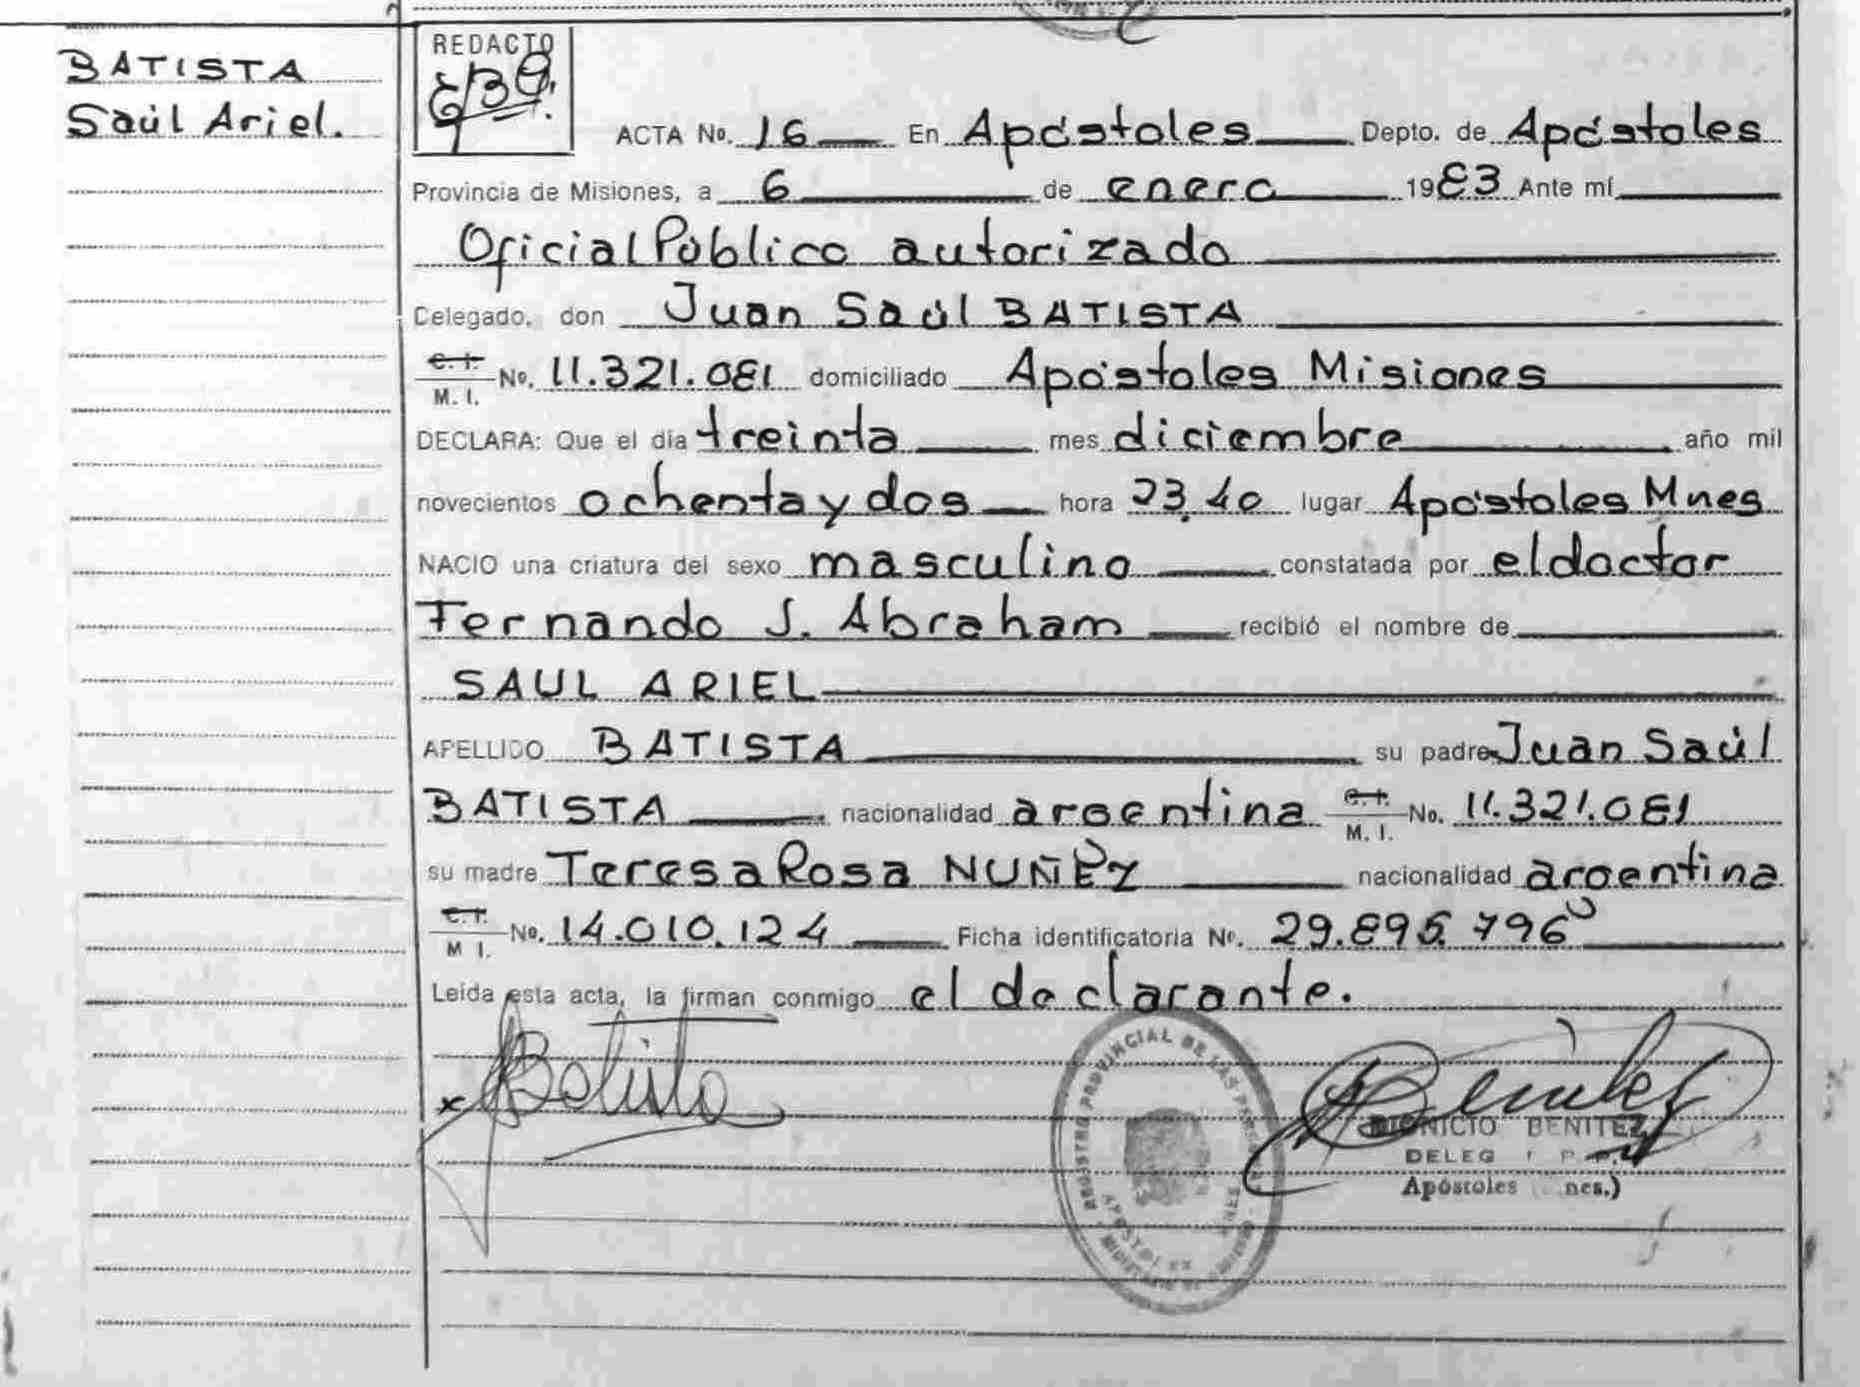 BATISTA
Saúl Ariel.
REDACTO
ACTA No. 16 En Apóstoles Depto. de Apóstoles
Provincia de Misiones, a 6 de enero 1983 Ante mí
Oficial Público autorizado
Delegado, don Juan Saúl BATISTA
C. I. M. I. No. 11.321.081 domiciliado Apóstoles Misiones
DECLARA: Que el día treinta mes diciembre año mil
novecientos ochenta y dos hora 23,40 lugar Apóstoles Mnes
NACIO una criatura del sexo masculino constatada por el doctor
Fernando J. Abraham recibió el nombre de
SAUL ARIEL
APELLIDO BATISTA su padre Juan Saúl
BATISTA nacionalidad argentina C. I. M. I. No. 11.321.081
su madre Teresa Rosa NUÑEZ nacionalidad argentina
C. I. M I. No. 14.010.124 Ficha identificatoria No. 29.895.796
Leída esta acta, la firman conmigo el declarante.
x Batista
REGISTRO PROVINCIAL DE LAS PERSONAS
APOSTOLES
DIONICIO BENITEZ
DELEG
Apóstoles nes.)